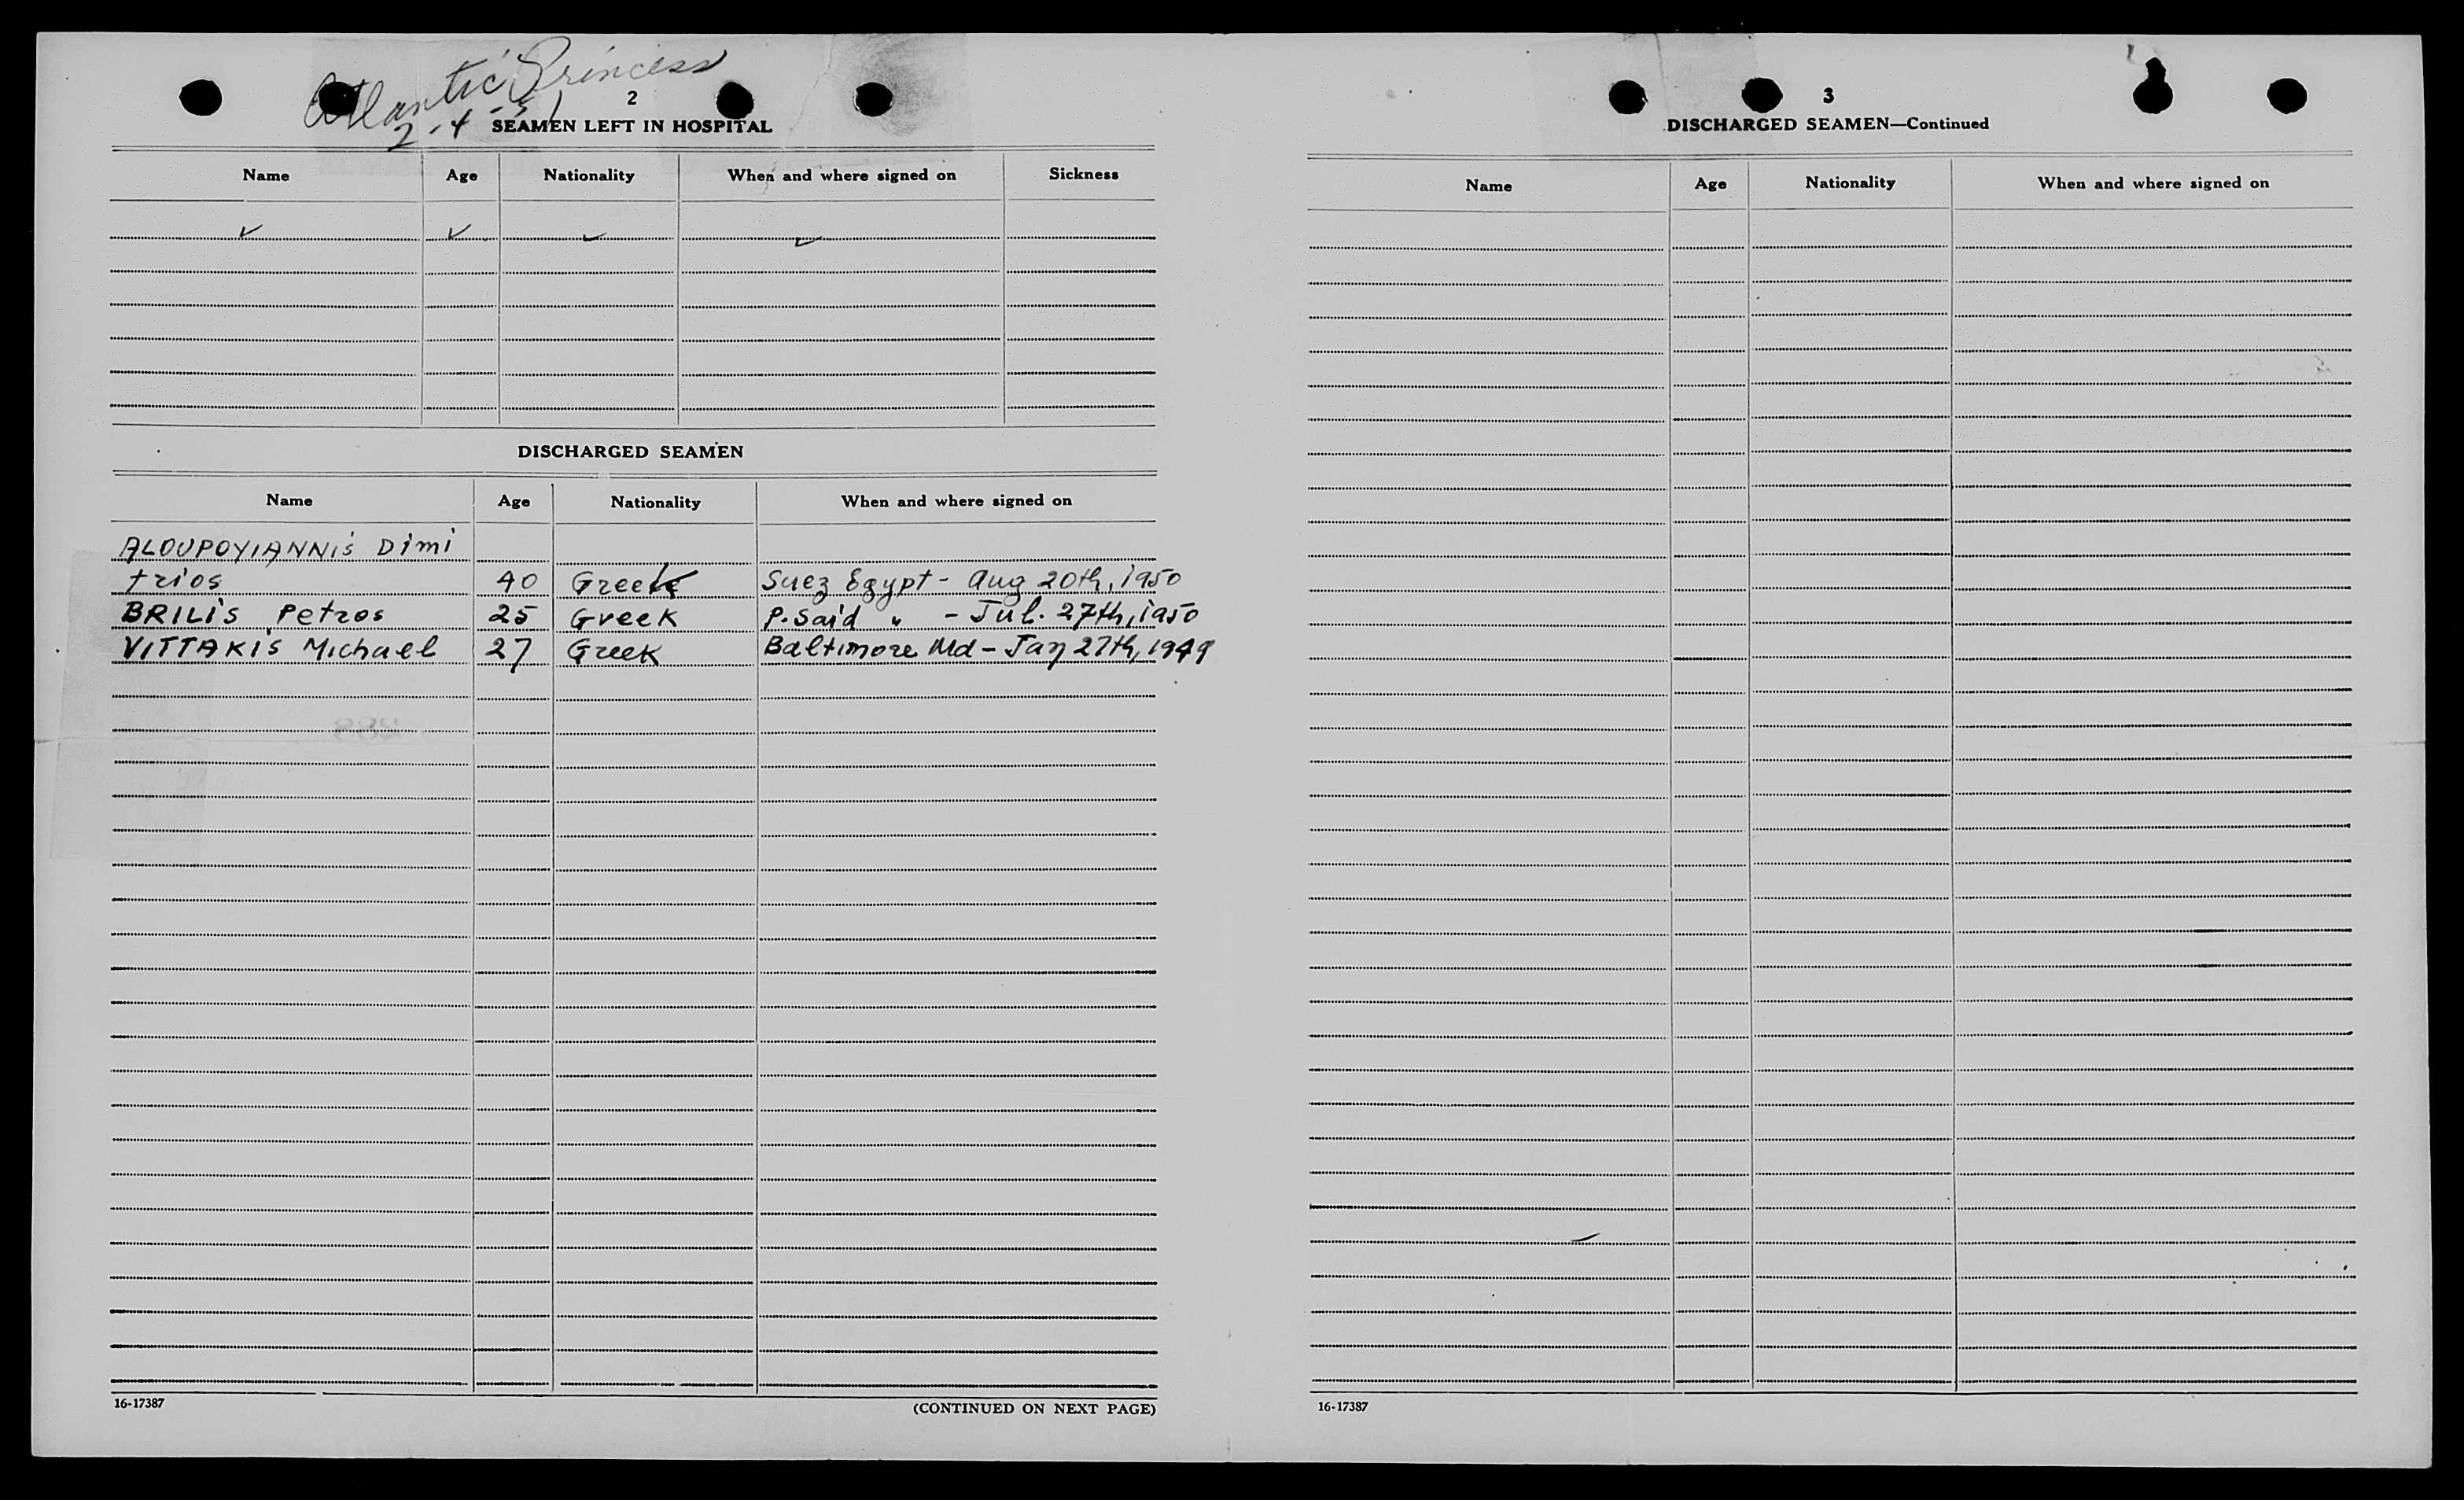 Atlantic Princess
2-4-51
2
SEAMEN LEFT IN HOSPITAL
Name Age Nationality When and where signed on Sickness
DISCHARGED SEAMEN
Name Age Nationality When and where signed on
ALOUPOYIANNIS Dimi
trios 40 Greek Suez Egypt - Aug 20th, 1950
BRILIS Petros 25 Greek P. Said " - Jul. 27th, 1950
VITTAKIS Michael 27 Greek Baltimore Md - Jan 27th, 1949
16-17387
(CONTINUED ON NEXT PAGE)
3
DISCHARGED SEAMEN—Continued
Name Age Nationality When and where signed on
16-17387